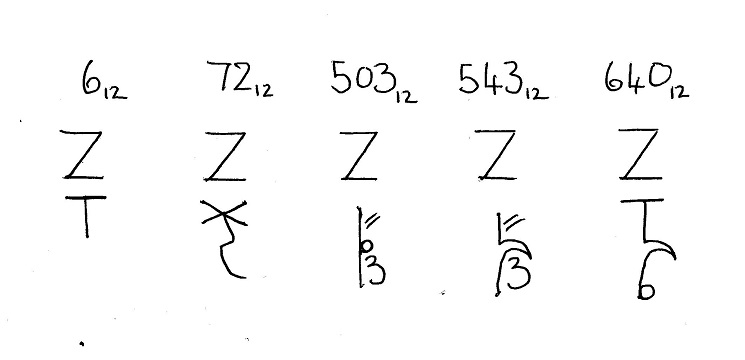 6₁₂ 72₁₂ 503₁₂ 543₁₂ 640₁₂
Z Z Z Z Z